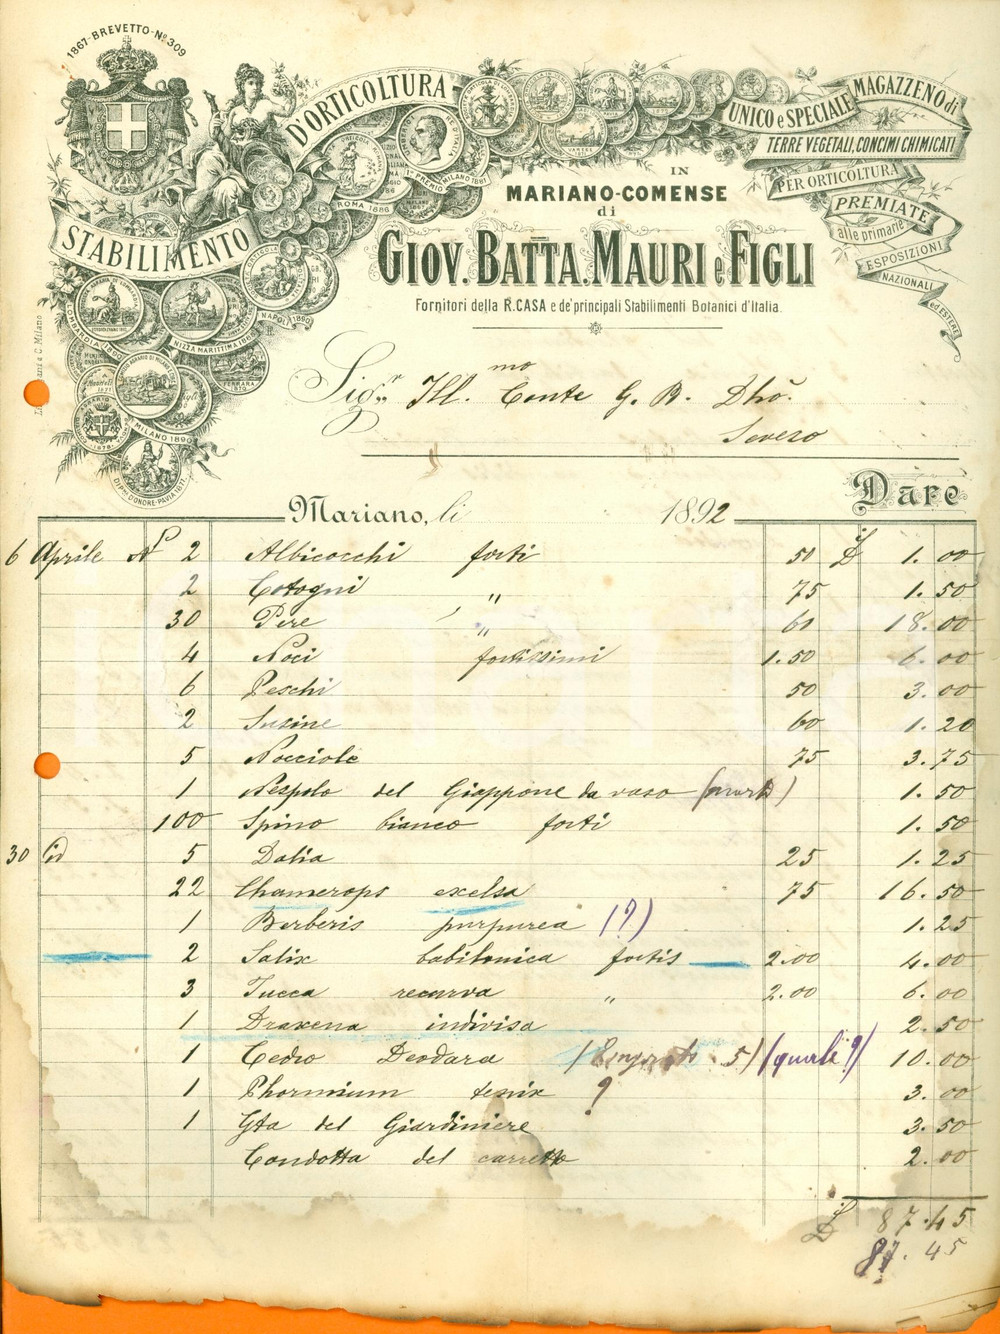 1867-BREVETTO-No 309
STABILIMENTO
D'ORTICOLTURA
UNICO e SPECIALE MAGAZZENO di
TERRE VEGETALI, CONCIMI CHIMICATI
PER ORTICOLTURA
PREMIATE
alle primarie
ESPOSIZIONI
NAZIONALI
ed ESTERE
1° PREMIO MILANO 1881
ROMA 1886
NAPOLI 1890
NIZZA MARITTIMA 1886
FERRARA 1870
MILANO 1890
DIPMA D'ONORE-PAVIA 1877
IN
MARIANO-COMENSE
di
GIOV. BATTA. MAURI e FIGLI
Fornitori della R. CASA e de' principali Stabilimenti Botanici d'Italia.
Sigr. Ill.mo Conte G. B. Dho.
Seveso
Dare
Mariano, li 1892
6 Aprile No 2 Albicocchi forti 50 £ 1.00
2 Cotogni " 75 1.50
30 Pere " 60 18.00
4 Noci fortissimi 1.50 6.00
6 Peschi 50 3.00
2 Susine 60 1.20
5 Nocciole 75 3.75
1 Nespolo del Giappone da vaso 1.50
100 Spino bianco forti 1.50
30 id 5 Dalia 25 1.25
22 Chamerops excelsa 75 16.50
1 Berberis purpurea (?) 1.25
2 Salix babilonica fortis 2.00 4.00
3 Yucca recurva " 2.00 6.00
1 Draxena indivisa 2.50
1 Cedro Deodara 5) (quale?) 10.00
1 Phormium tenix ? 3.00
1 Gta del Giardiniere 3.50
Condotta del carretto 2.00
£ 87.45
87.45